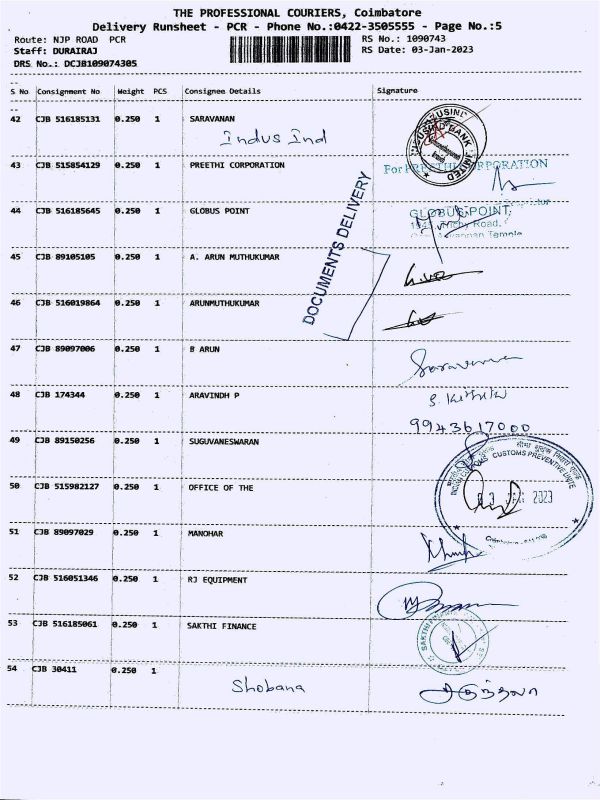 THE PROFESSIONAL COURIERS, Coimbatore
Delivery Runsheet - PCR - Phone No.:0422-3505555 - Page No.:5
Route: NJP ROAD PCR
RS No.: 1090743
Staff: DURAIRAJ
RS Date: 03-Jan-2023
DRS No.: DCJB109074305
S No Consignment No Weight PCS Consignee Details Signature
42 CJB 516185131 0.250 1 SARAVANAN
Indus Ind
43 CJB 515854129 0.250 1 PREETHI CORPORATION
For PREETHI CORPORATION
44 CJB 516185645 0.250 1 GLOBUS POINT
GLOBUS POINT,
Trichy Road,
Temple
DOCUMENTS DELIVERY
45 CJB 89105105 0.250 1 A. ARUN MUTHUKUMAR
46 CJB 516019864 0.250 1 ARUNMUTHUKUMAR
47 CJB 89097006 0.250 1 B ARUN
48 CJB 174344 0.250 1 ARAVINDH P
9943617000
49 CJB 89150256 0.250 1 SUGUVANESWARAN
CUSTOMS PREVENTIVE UNIT
50 CJB 515982127 0.250 1 OFFICE OF THE
03 JAN 2023
51 CJB 89097029 0.250 1 MANOHAR
52 CJB 516051346 0.250 1 RJ EQUIPMENT
53 CJB 516185061 0.250 1 SAKTHI FINANCE
SAKTHI
54 CJB 30411 0.250 1
Shobana